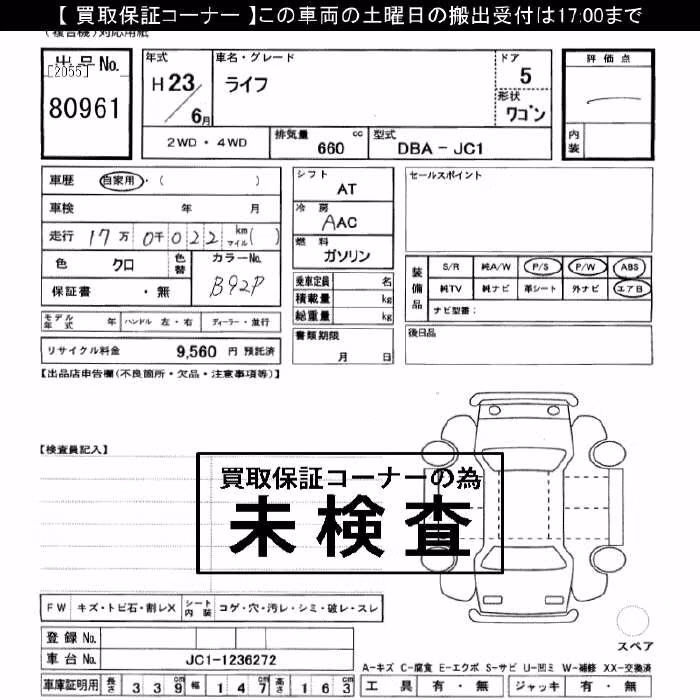 【 買取保証コーナー 】この車両の土曜日の搬出受付は17:00まで
(複合機)対応用紙
出品No.
[2055]
80961
年式
H23
6月
車名・グレード
ライフ
ドア
5
形状
ワゴン
評価点
内装
2WD・4WD
排気量 660 cc
型式 DBA-JC1
車歴 自家用・( )
車検 年 月
走行 17万0千022 km マイル( )
色 クロ 色替
カラーNo. B92P
保証書 ・無
モデル年式 年 ハンドル 左・右 ディーラー・並行
リサイクル料金 9,560 円 預託済
シフト AT
冷房 AAC
燃料 ガソリン
乗車定員 名
積載量 kg
総重量 kg
書類期限
月 日
セールスポイント
装備品
S/R 純A/W P/S P/W ABS
純TV 純ナビ 革シート 外ナビ エアB
ナビ型番:
後日品
【出品店申告欄(不良箇所・欠品・注意事項等)】
【検査員記入】
買取保証コーナーの為
未検査
FW キズ・トビ石・割レX シート内装 コゲ・穴・汚レ・シミ・破レ・スレ
登録No.
車台No. JC1-1236272
車庫証明用 長さ 339cm 幅 147cm 高さ 163cm
スペア
A-キズ C-腐食 E-エクボ S-サビ U-凹ミ W-補修 XX-交換済
工具 有・無 ジャッキ 有・無